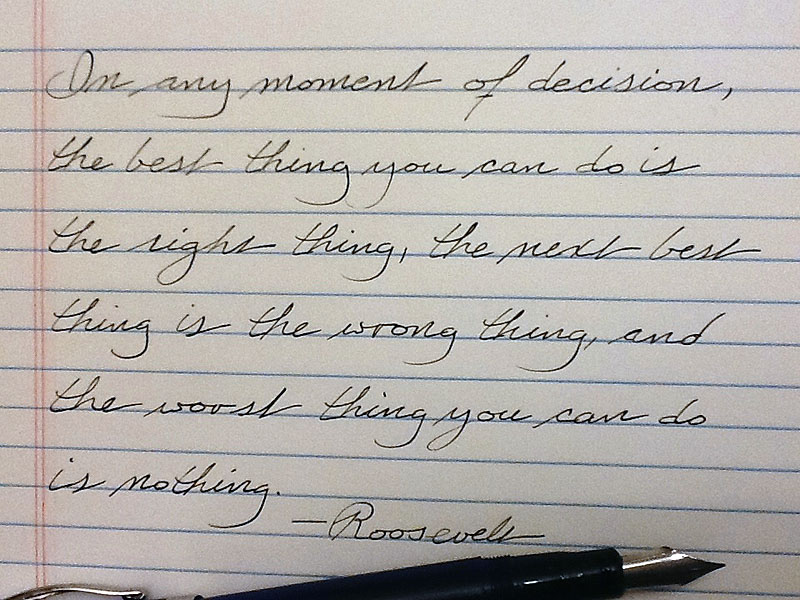 In any moment of decision,
the best thing you can do is
the right thing, the next best
thing is the wrong thing, and
the worst thing you can do
is nothing.
—Roosevelt